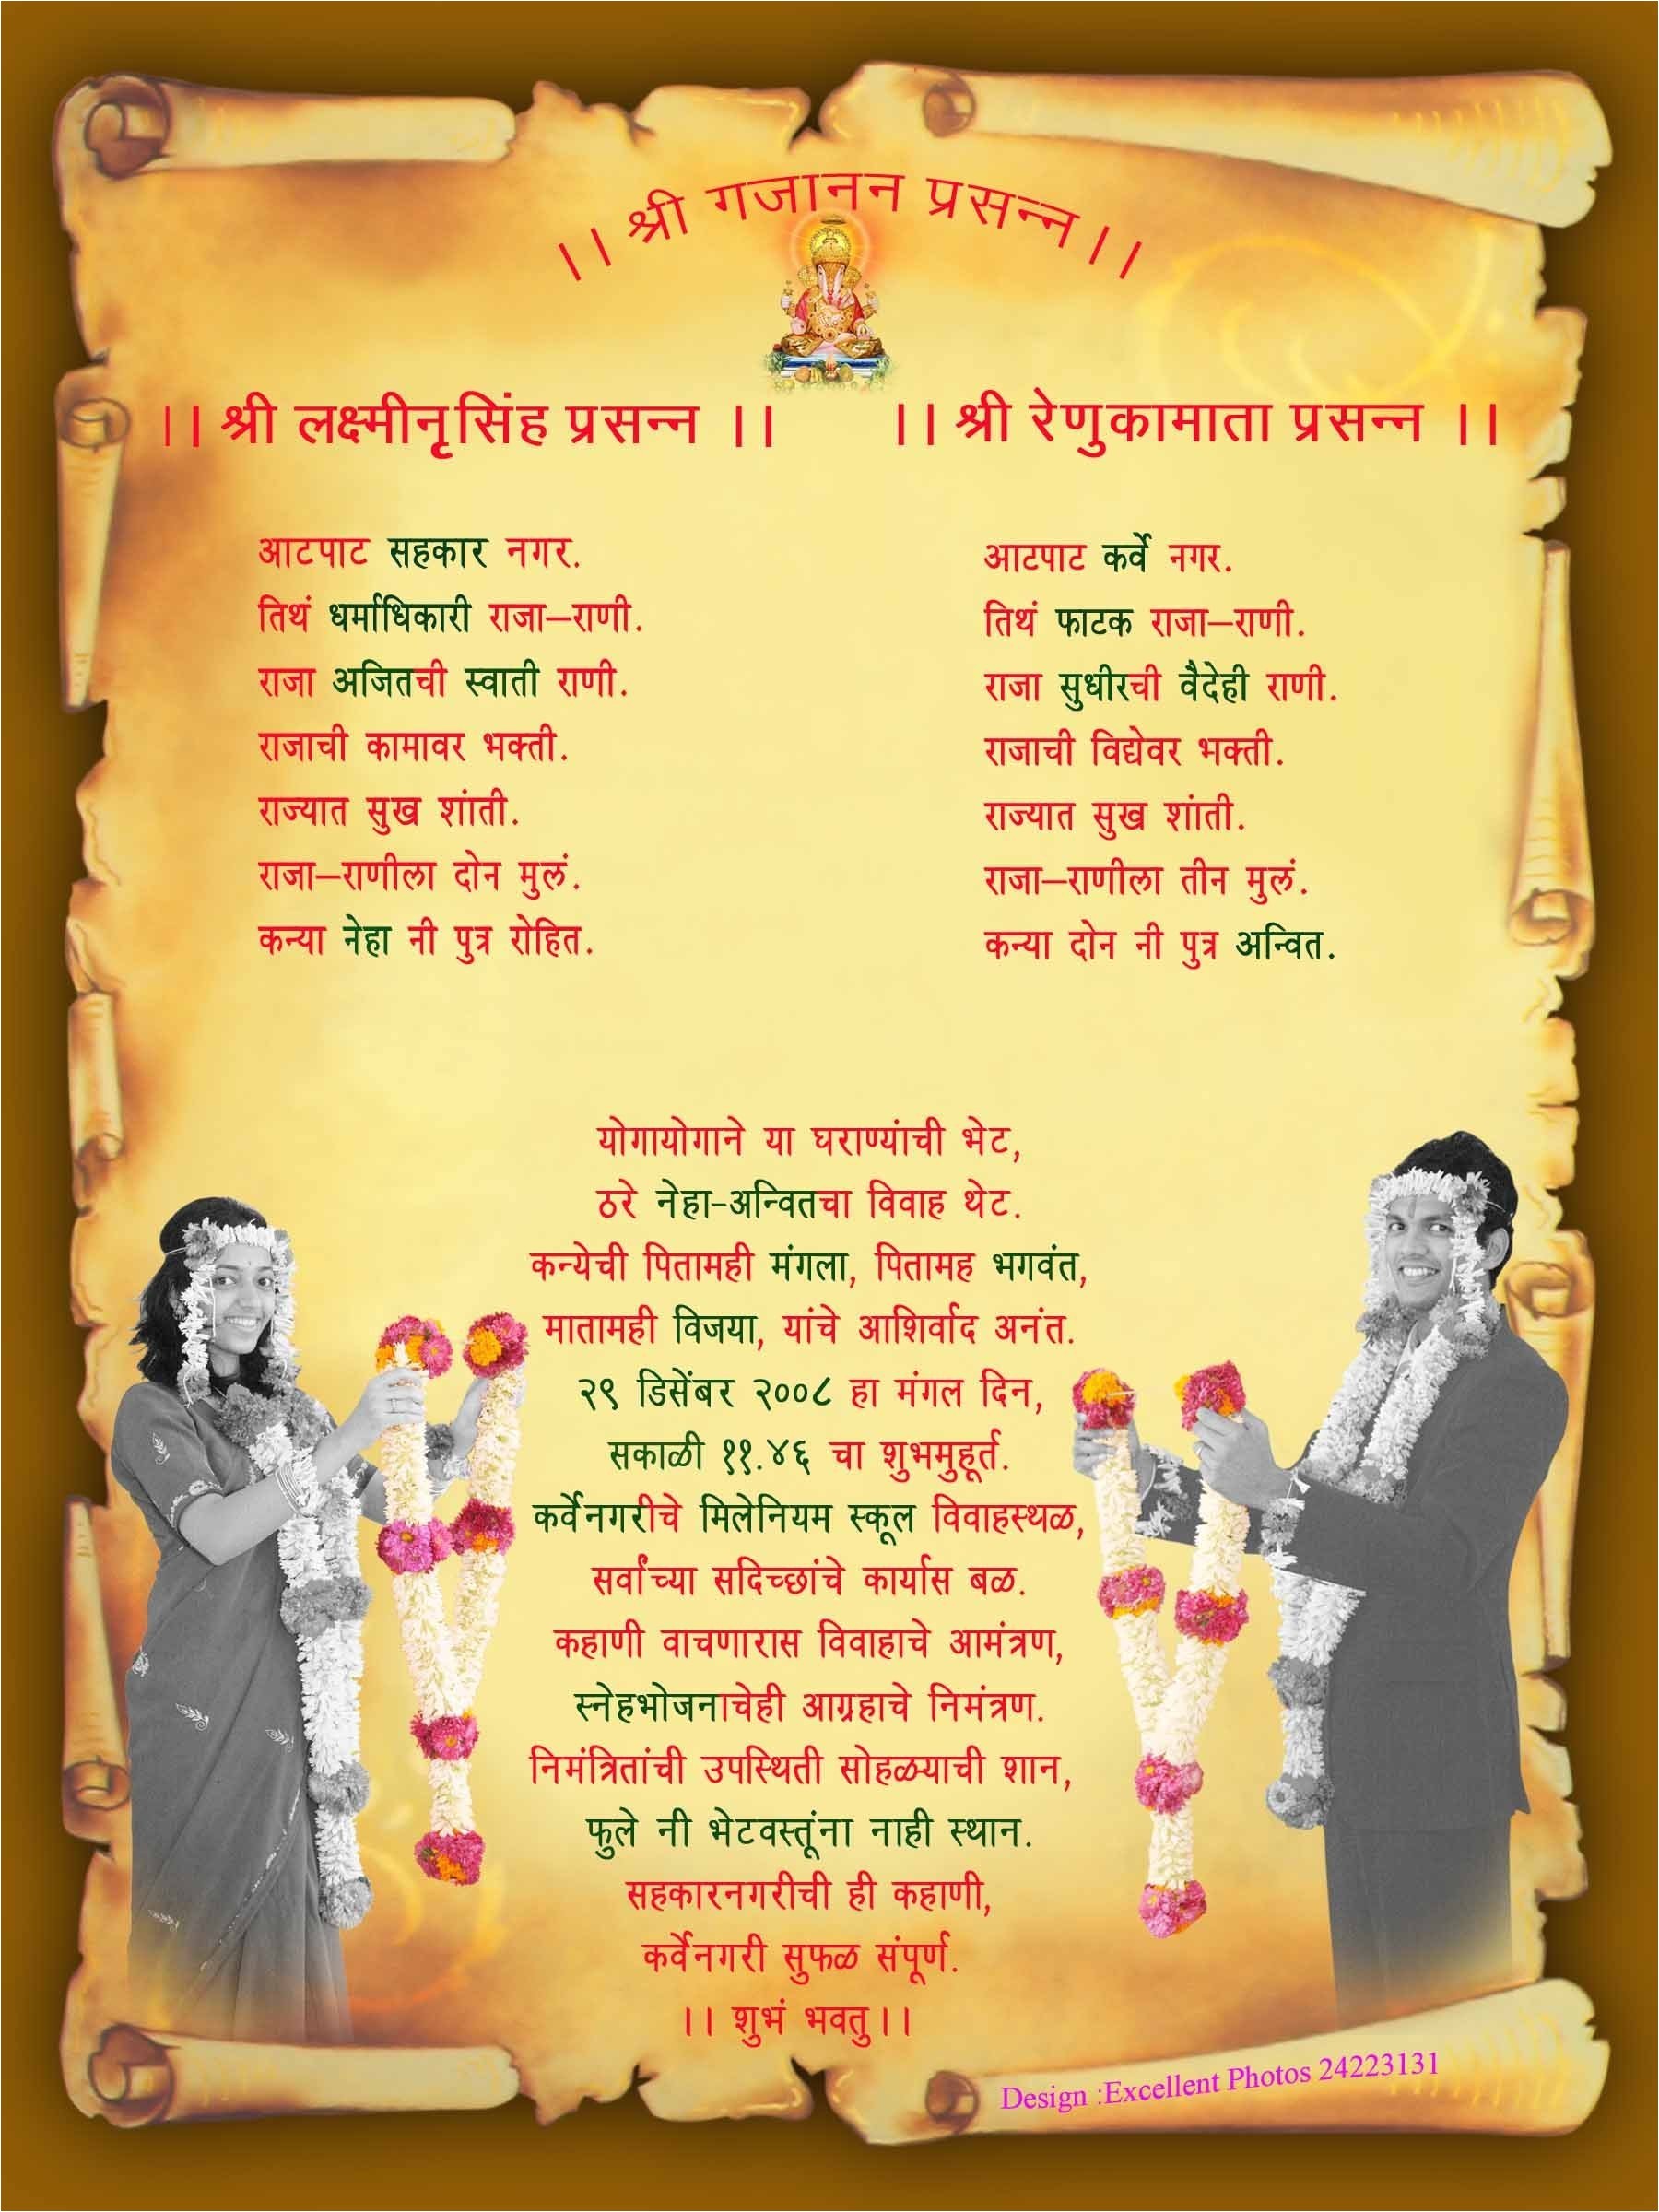 ।। श्री गजानन प्रसन्न।।
।। श्री लक्ष्मीनृसिंह प्रसन्न ।।
।। श्री रेणुकामाता प्रसन्न ।।
आटपाट सहकार नगर.
तिथं धर्माधिकारी राजा–राणी.
राजा अजितची स्वाती राणी.
राजाची कामावर भक्ती.
राज्यात सुख शांती.
राजा–राणीला दोन मुलं.
कन्या नेहा नी पुत्र रोहित.
आटपाट कर्वे नगर.
तिथं फाटक राजा–राणी.
राजा सुधीरची वैदेही राणी.
राजाची विद्येवर भक्ती.
राज्यात सुख शांती.
राजा–राणीला तीन मुलं.
कन्या दोन नी पुत्र अन्वित.
योगायोगाने या घराण्यांची भेट,
ठरे नेहा-अन्वितचा विवाह थेट.
कन्येची पितामही मंगला, पितामह भगवंत,
मातामही विजया, यांचे आशिर्वाद अनंत.
२९ डिसेंबर २००८ हा मंगल दिन,
सकाळी ११.४६ चा शुभमुहूर्त.
कर्वेनगरीचे मिलेनियम स्कूल विवाहस्थळ,
सर्वांच्या सदिच्छांचे कार्यास बळ.
कहाणी वाचणारास विवाहाचे आमंत्रण,
स्नेहभोजनाचेही आग्रहाचे निमंत्रण.
निमंत्रितांची उपस्थिती सोहळ्याची शान,
फुले नी भेटवस्तूंना नाही स्थान.
सहकारनगरीची ही कहाणी,
कर्वेनगरी सुफळ संपूर्ण.
।। शुभं भवतु।।
Design :Excellent Photos 24223131